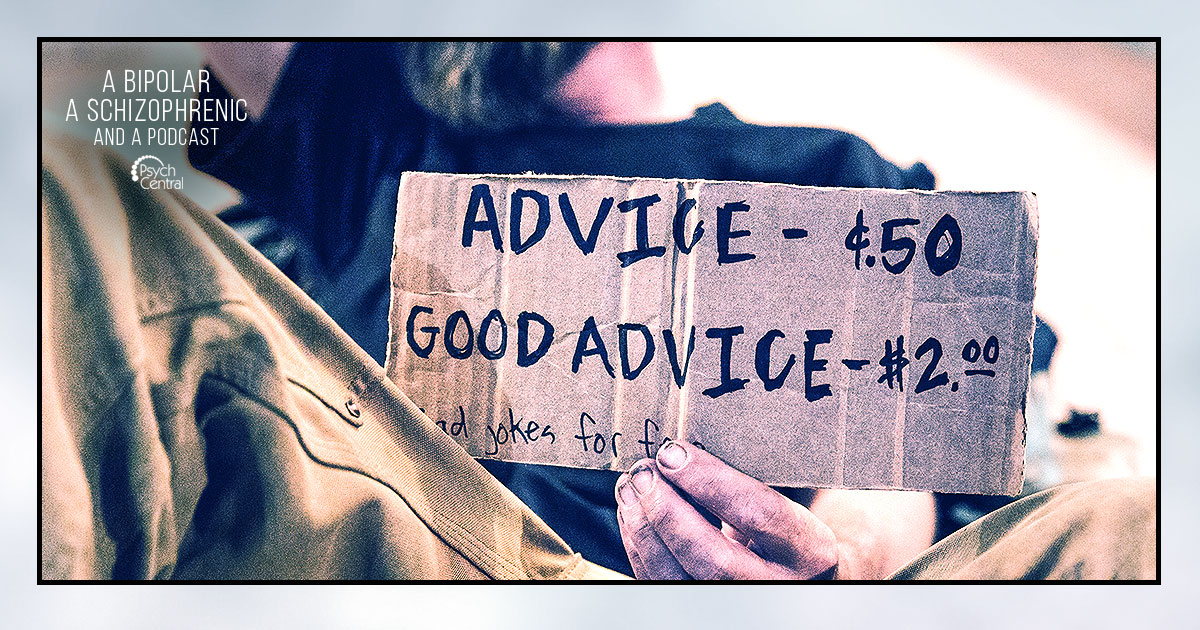 A BIPOLAR
A SCHIZOPHRENIC
AND A PODCAST
Psych
Central
ADVICE - ¢.50
GOOD ADVICE - $2.00
jokes for